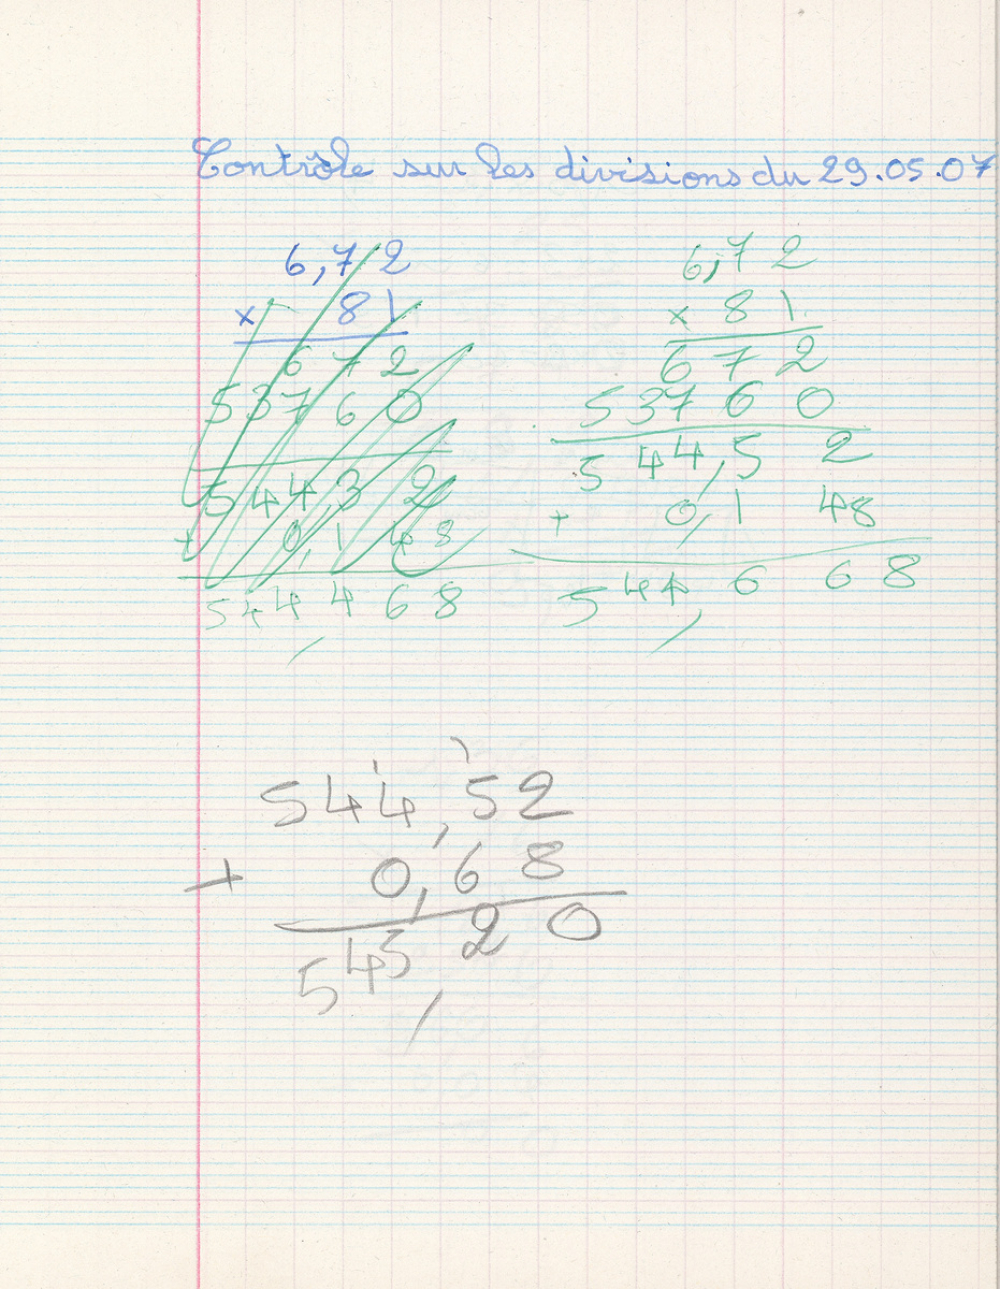 Contrôle sur les divisions du 29.05.07
6,72
x 81
672
53760
544,32
+ 0,148
544,468
6,72
x 81
672
53760
544,52
+ 0,148
544,668
544,52
+ 0,68
545,20